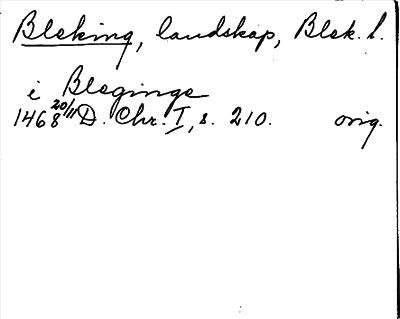 Bleking, landskap, Blek. l.
i Bleginge
1468 20/11 D. Chr. I, s. 210. orig.